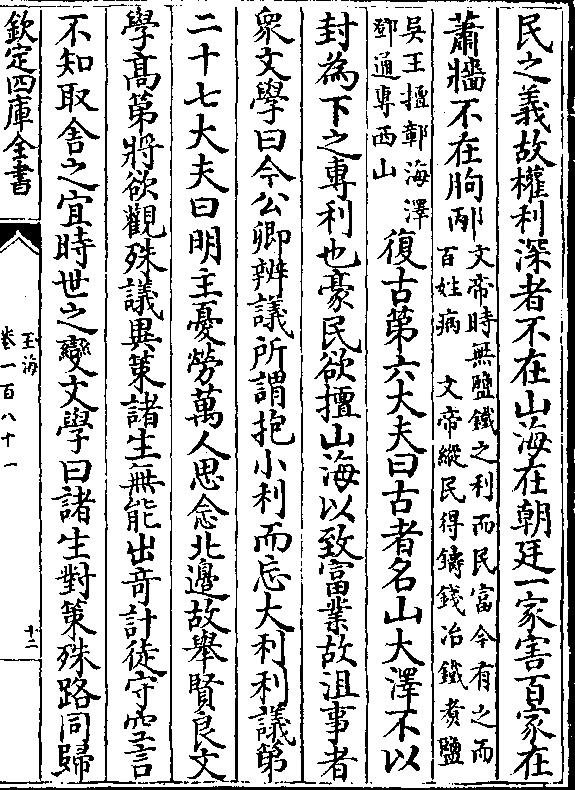 民之義故權利深者不在山海在朝廷一家害百家在
蕭牆不在朐邴文帝時無鹽鐵之利而民富今有之而
百姓病　文帝縱民得鑄錢冶鐵煮鹽
吳王擅鄣海澤
鄧通專西山
復古第六大夫曰古者名山大澤不以
封為下之專利也豪民欲擅山海以致富業故沮事者
衆文學曰今公卿辨議所謂抱小利而忘大利利議第
二十七大夫曰明主憂勞萬人思念北邊故舉賢良文
學髙第將欲觀殊議異策諸生無能出竒計徒守空言
不知取舎之宜時世之變文學曰諸生對策殊路同歸
欽定四庫全書
玉海
卷一百八十一
十二